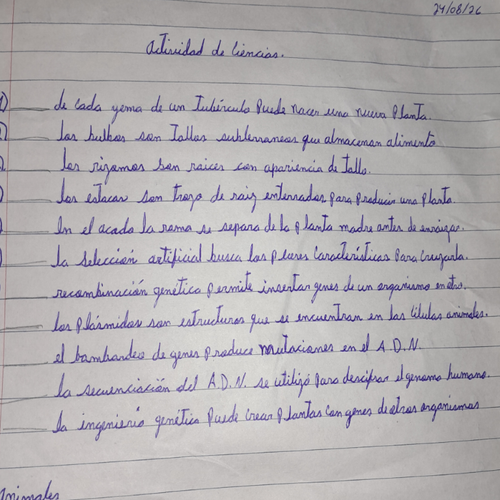 24/08/26
Actividad de Ciencias.
de cada yema de un tubérculo puede nacer una nueva planta.
los bulbos son tallos subterraneos que almacenan alimento
los rizomas son raices con apariencia de tallo.
las estacas son trozo de raiz enterradas para producir una planta.
En el acodo la rama se separa de la planta madre antes de enraizar.
la selección artificial busca las peores características para cruzarla.
recombinación genética permite insertar genes de un organismo en otro.
los plásmidos son estructuras que se encuentran en las células animales.
el bombardeo de genes produce mutaciones en el A.D.N.
la secuenciación del A.D.N. se utilizó para descifrar el genoma humano.
la ingenieria genética puede crear plantas con genes de otros organismos
animales